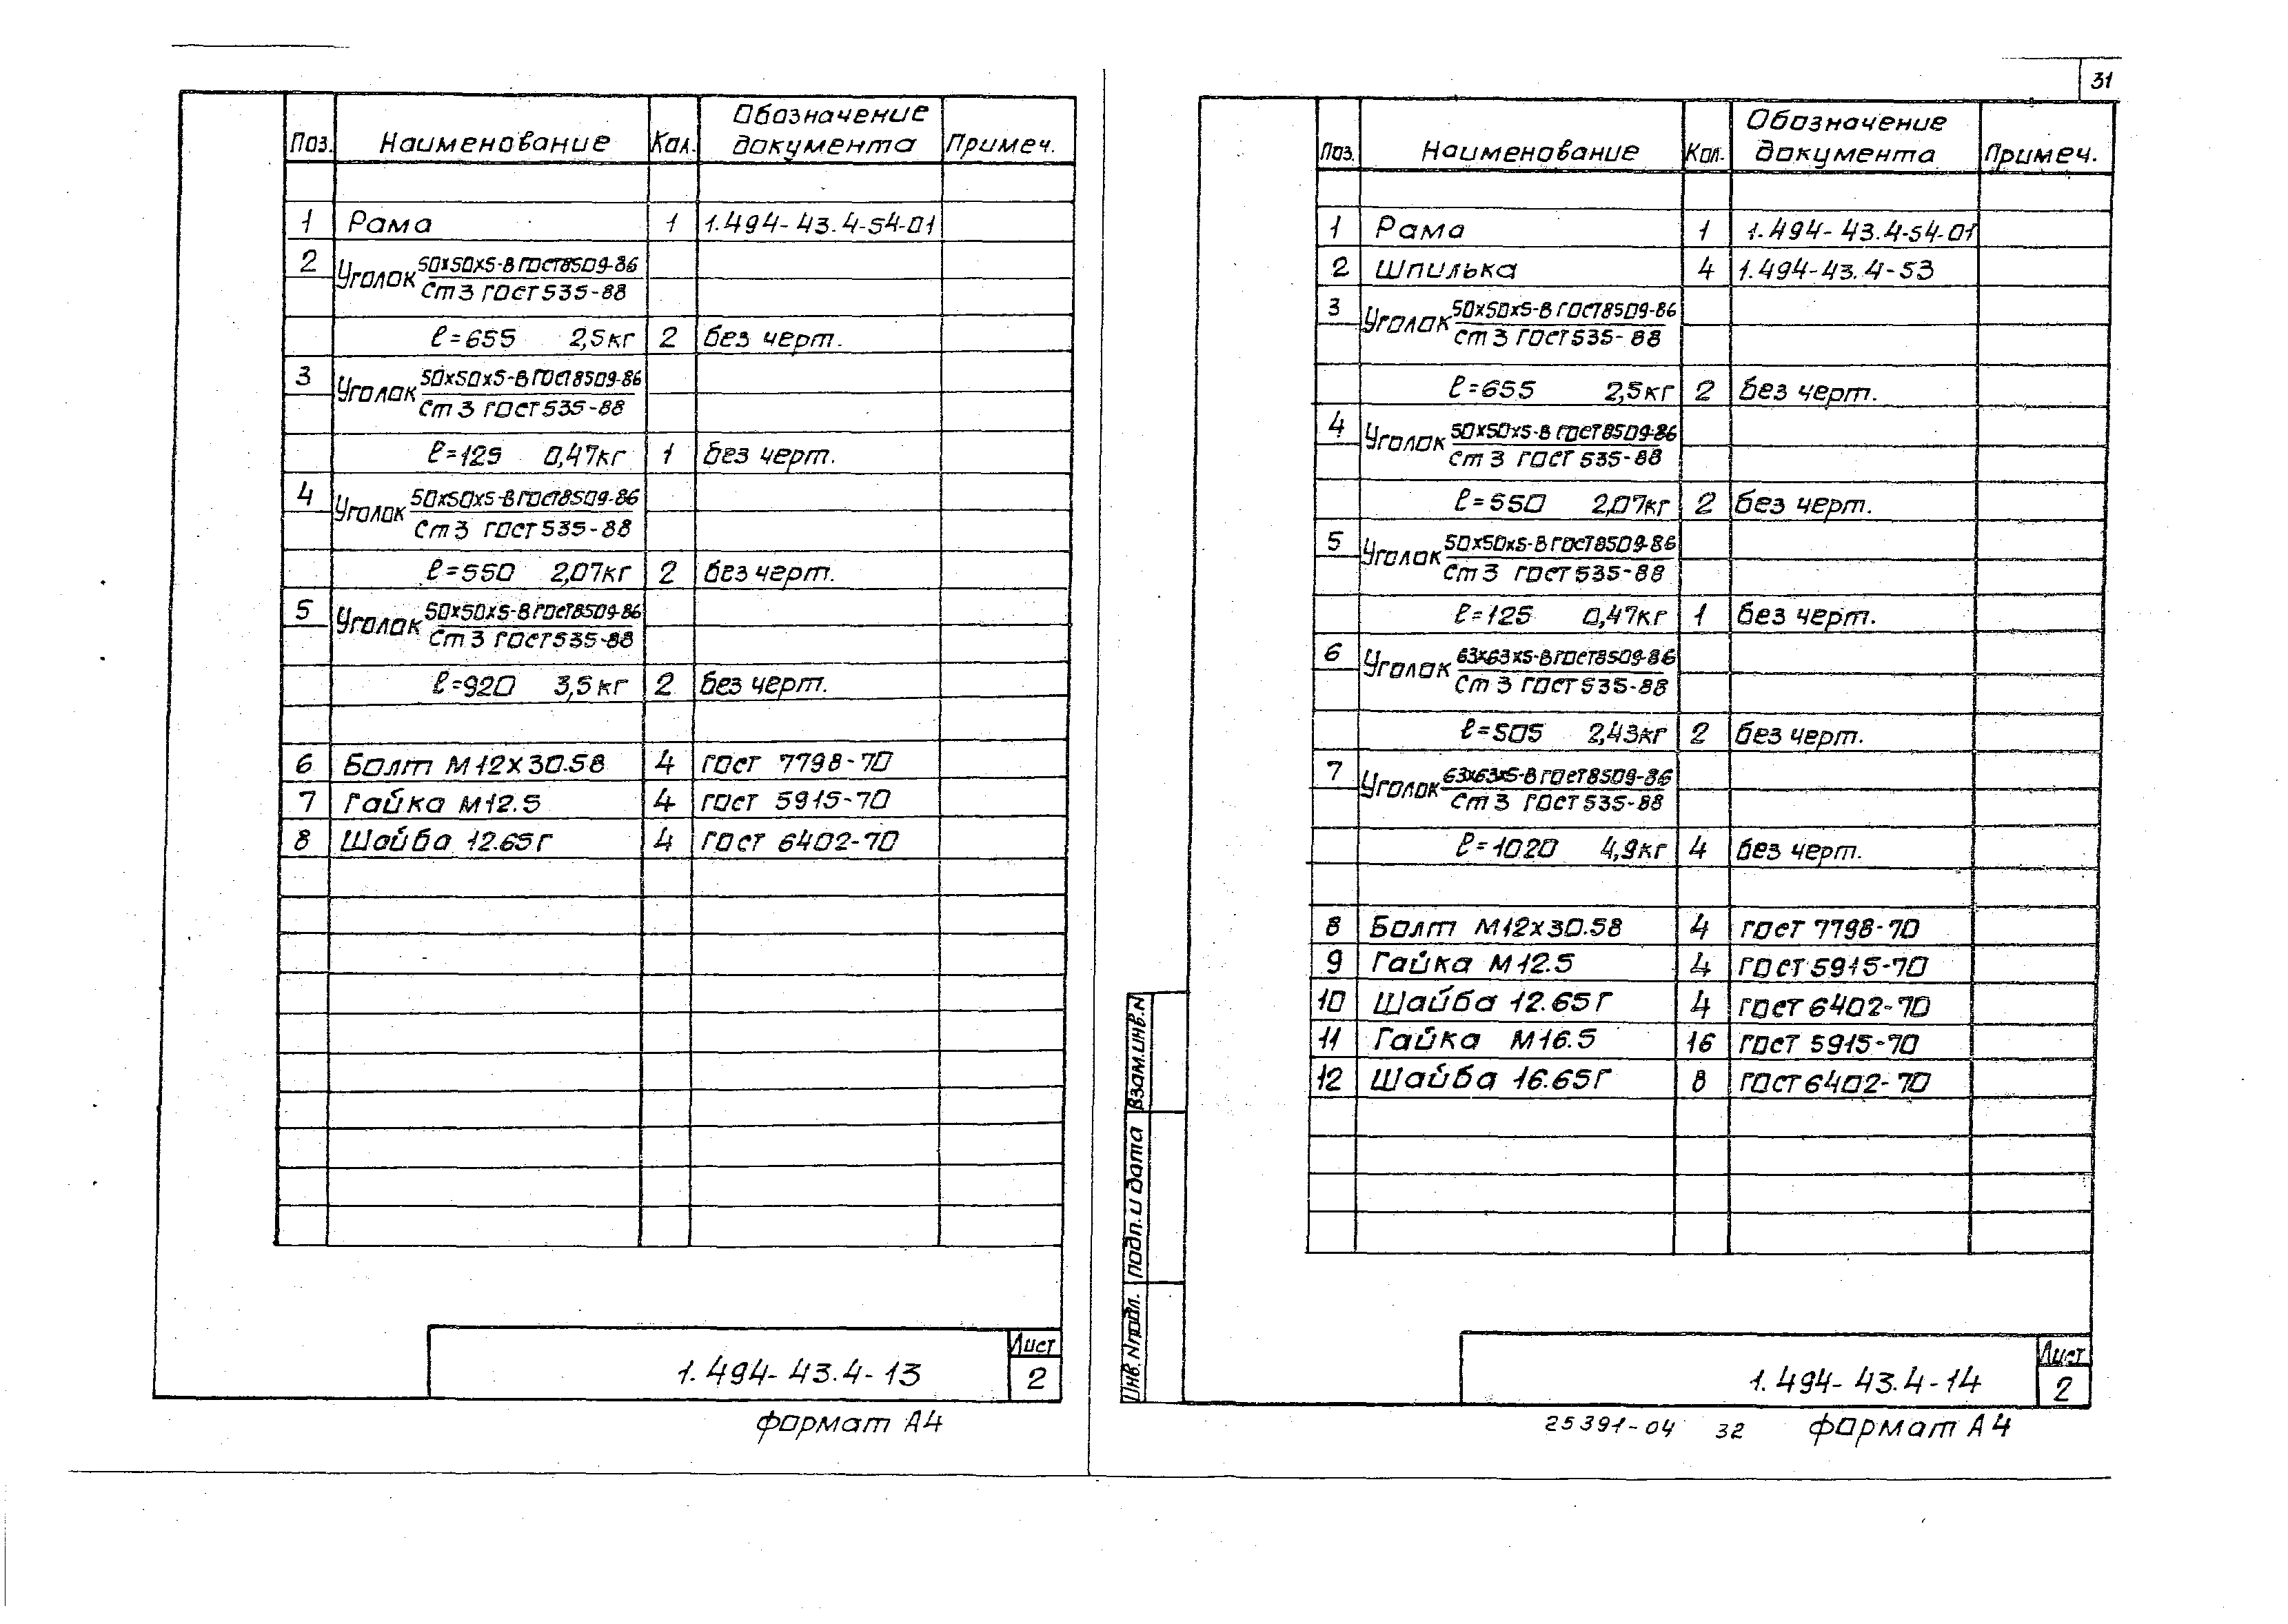 Поз. Наименование Кол. Обозначение документа Примеч.
1 Рама 1 1.494-43.4-54-01
2 Уголок 50х50х5-В ГОСТ8509-86
Ст3 ГОСТ535-88
ℓ=655 2,5кг 2 без черт.
3 Уголок 50х50х5-В ГОСТ8509-86
Ст3 ГОСТ535-88
ℓ=125 0,47кг 1 без черт.
4 Уголок 50х50х5-В ГОСТ8509-86
Ст3 ГОСТ535-88
ℓ=550 2,07кг 2 без черт.
5 Уголок 50х50х5-В ГОСТ8509-86
Ст3 ГОСТ535-88
ℓ=920 3,5кг 2 без черт.
6 Болт М12х30.58 4 ГОСТ 7798-70
7 Гайка М12.5 4 ГОСТ 5915-70
8 Шайба 12.65Г 4 ГОСТ 6402-70
1.494-43.4-13
Лист
2
формат А4
31
Поз. Наименование Кол. Обозначение документа Примеч.
1 Рама 1 1.494-43.4-54-01
2 Шпилька 4 1.494-43.4-53
3 Уголок 50х50х5-В ГОСТ8509-86
Ст3 ГОСТ535-88
ℓ=655 2,5кг 2 без черт.
4 Уголок 50х50х5-В ГОСТ8509-86
Ст3 ГОСТ535-88
ℓ=550 2,07кг 2 без черт.
5 Уголок 50х50х5-В ГОСТ8509-86
Ст3 ГОСТ535-88
ℓ=125 0,47кг 1 без черт.
6 Уголок 63х63х5-В ГОСТ8509-86
Ст3 ГОСТ535-88
ℓ=505 2,43кг 2 без черт.
7 Уголок 63х63х5-В ГОСТ8509-86
Ст3 ГОСТ535-88
ℓ=1020 4,9кг 4 без черт.
8 Болт М12х30.58 4 ГОСТ 7798-70
9 Гайка М12.5 4 ГОСТ 5915-70
10 Шайба 12.65Г 4 ГОСТ 6402-70
11 Гайка М16.5 16 ГОСТ 5915-70
12 Шайба 16.65Г 8 ГОСТ 6402-70
Взам.инв.N
Подп. и дата
Инв.Nподл.
1.494-43.4-14
Лист
2
25391-04 32 формат А4